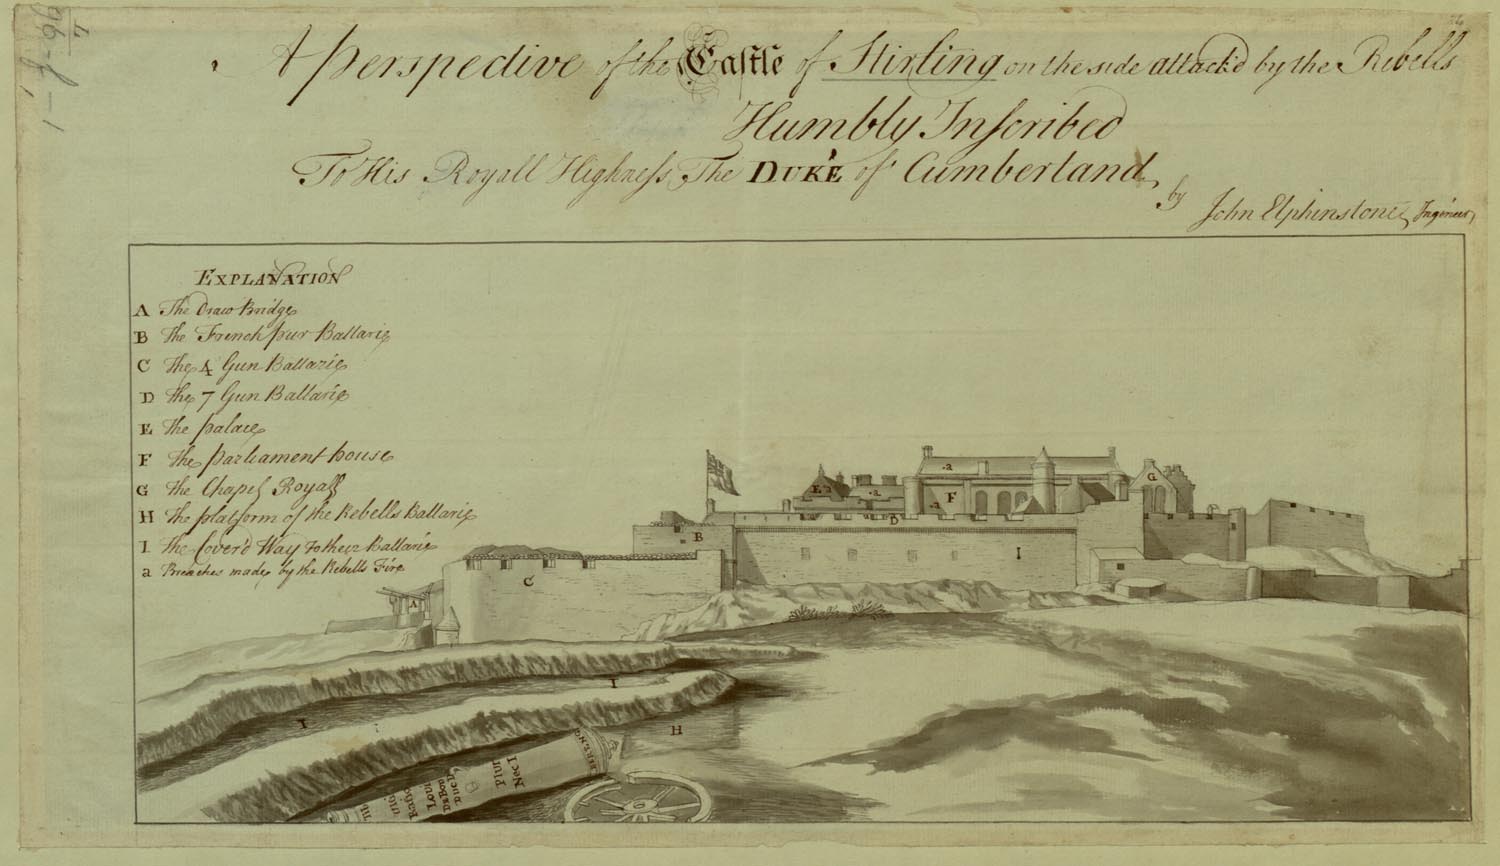 A Perspective of the Castle of Stirling on the side attack'd by the Rebells
Humbly Inscribed
To His Royall Highness The DUKE of Cumberland
by John Elphinstone Ingineer
EXPLANATION
A The Draw Bridge
B The French spur Battarie
C The 4 Gun Battarie
D the 7 Gun Battarie
E the palace
F the parliament house
G the Chapel Royall
H The platform of the Rebells Battarie
I The Cover'd Way to their Battarie
a Breaches made by the Rebells Fire
a
E
a
F
G
a
D
B
I
C
A
I
I
H
Plur
Nec I
LOUI
DUC D